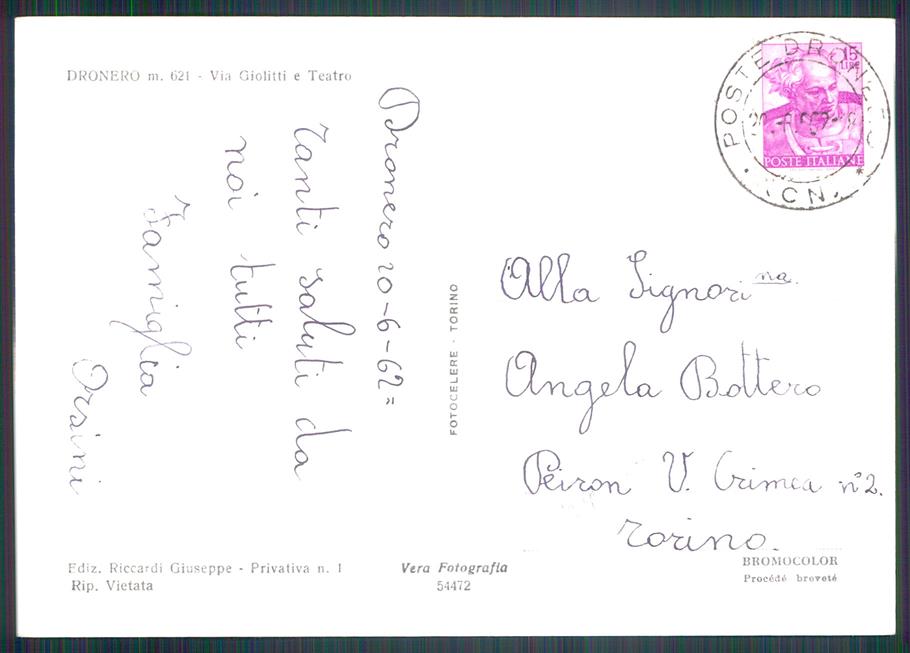 DRONERO m. 621 - Via Giolitti e Teatro
Dronero 20-6-62=
Tanti saluti da
noi tutti
Famiglia
Orsini
FOTOCELERE - TORINO
15
LIRE
POSTE ITALIANE
POSTE DRONERO
(CN)
Alla Signorina
Angela Bottero
Peiron V. Crimea n°2.
Torino.
Ediz. Riccardi Giuseppe - Privativa n. 1
Rip. Vietata
Vera Fotografia
54472
BROMOCOLOR
Procédé breveté